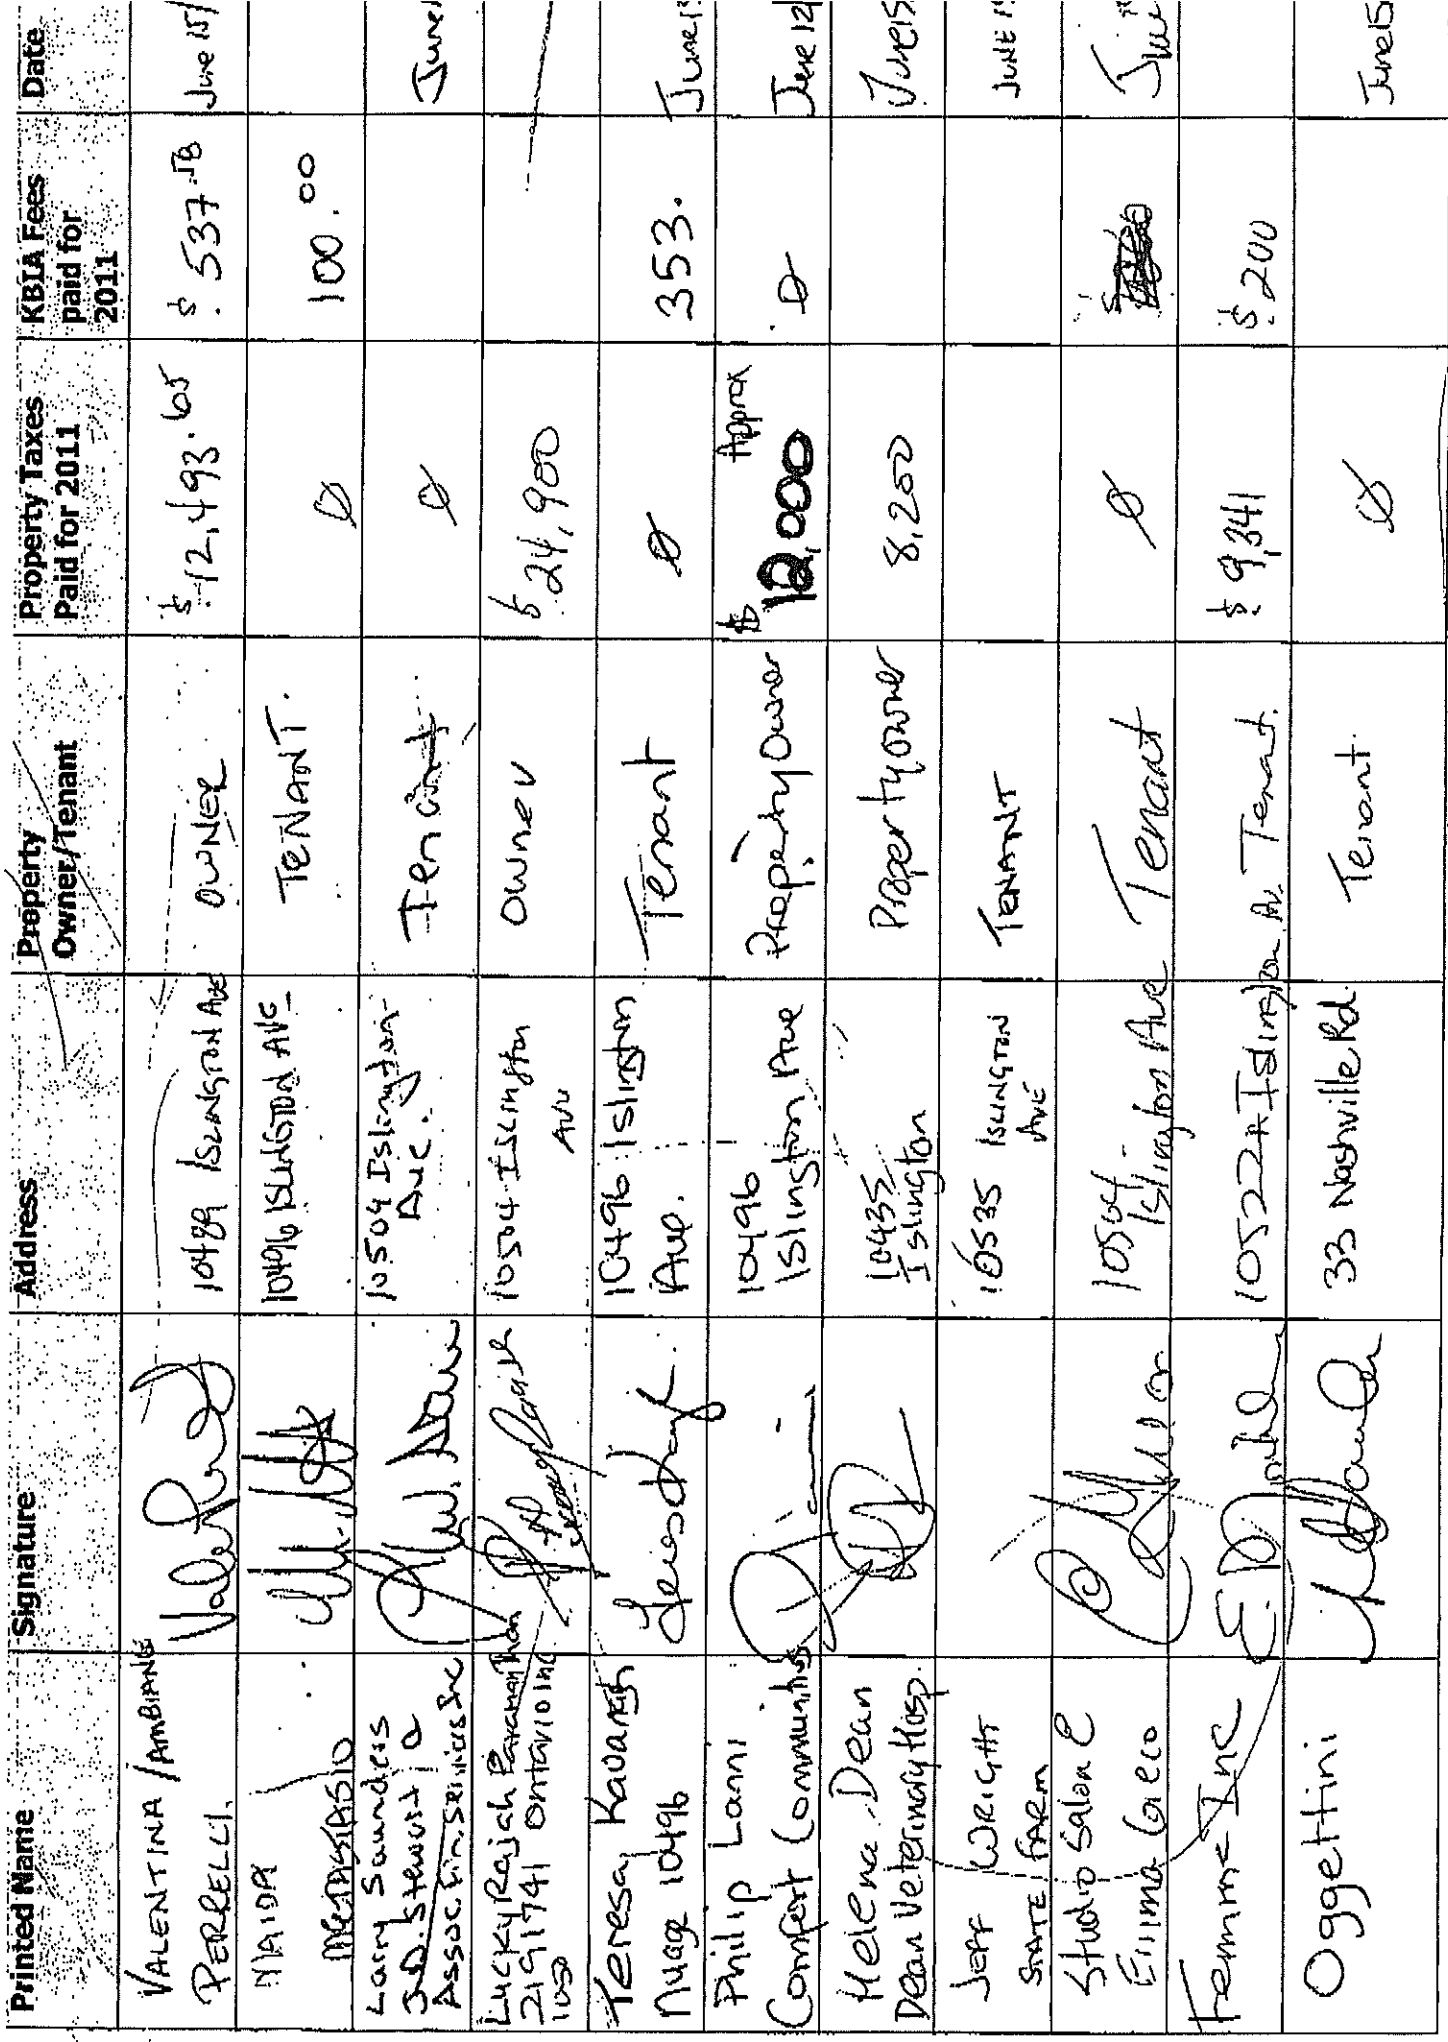 Printed Name Signature Address Property Owner/Tenant Property Taxes Paid for 2011 KBIA Fees paid for 2011 Date
VALENTINA /AMBIANCE
PERRELLI. 10489 ISLINGTON AVE OWNER $ 12,493.65 $ 537. June 15/
NAIDA
10496 ISLINGTON AVE TENANT. Ø 100.00
Larry Saunders
J.D. Stewart &
Assoc. Fin. Services Inc 10504 Islington
Ave. Tenant Ø June
Lucky Rajah
2191741 Ontario Inc 10504 Islington
Ave Owner $ 24,900
Teresa Kavanagh
Nuage 10496 10496 Islington
Ave. Tenant Ø 353. June 13
Philip Lanni
Comfort Communities 10496
Islington Ave Property Owner $ 12,000 Approx Ø June 12
Helena Dean
Dean Veterinary Hosp. 10435
Islington Property owner 8,200 June 15
JEFF WRIGHT
STATE FARM 10535 ISLINGTON
AVE TENANT JUNE
Studio Salon E
10504
Islington Ave Tenant Ø $
Femme Inc 10522A Islington Av. Tenant. $ 9,341 $ 200
Oggettini 33 Nashville Rd. Tenant. Ø June 15